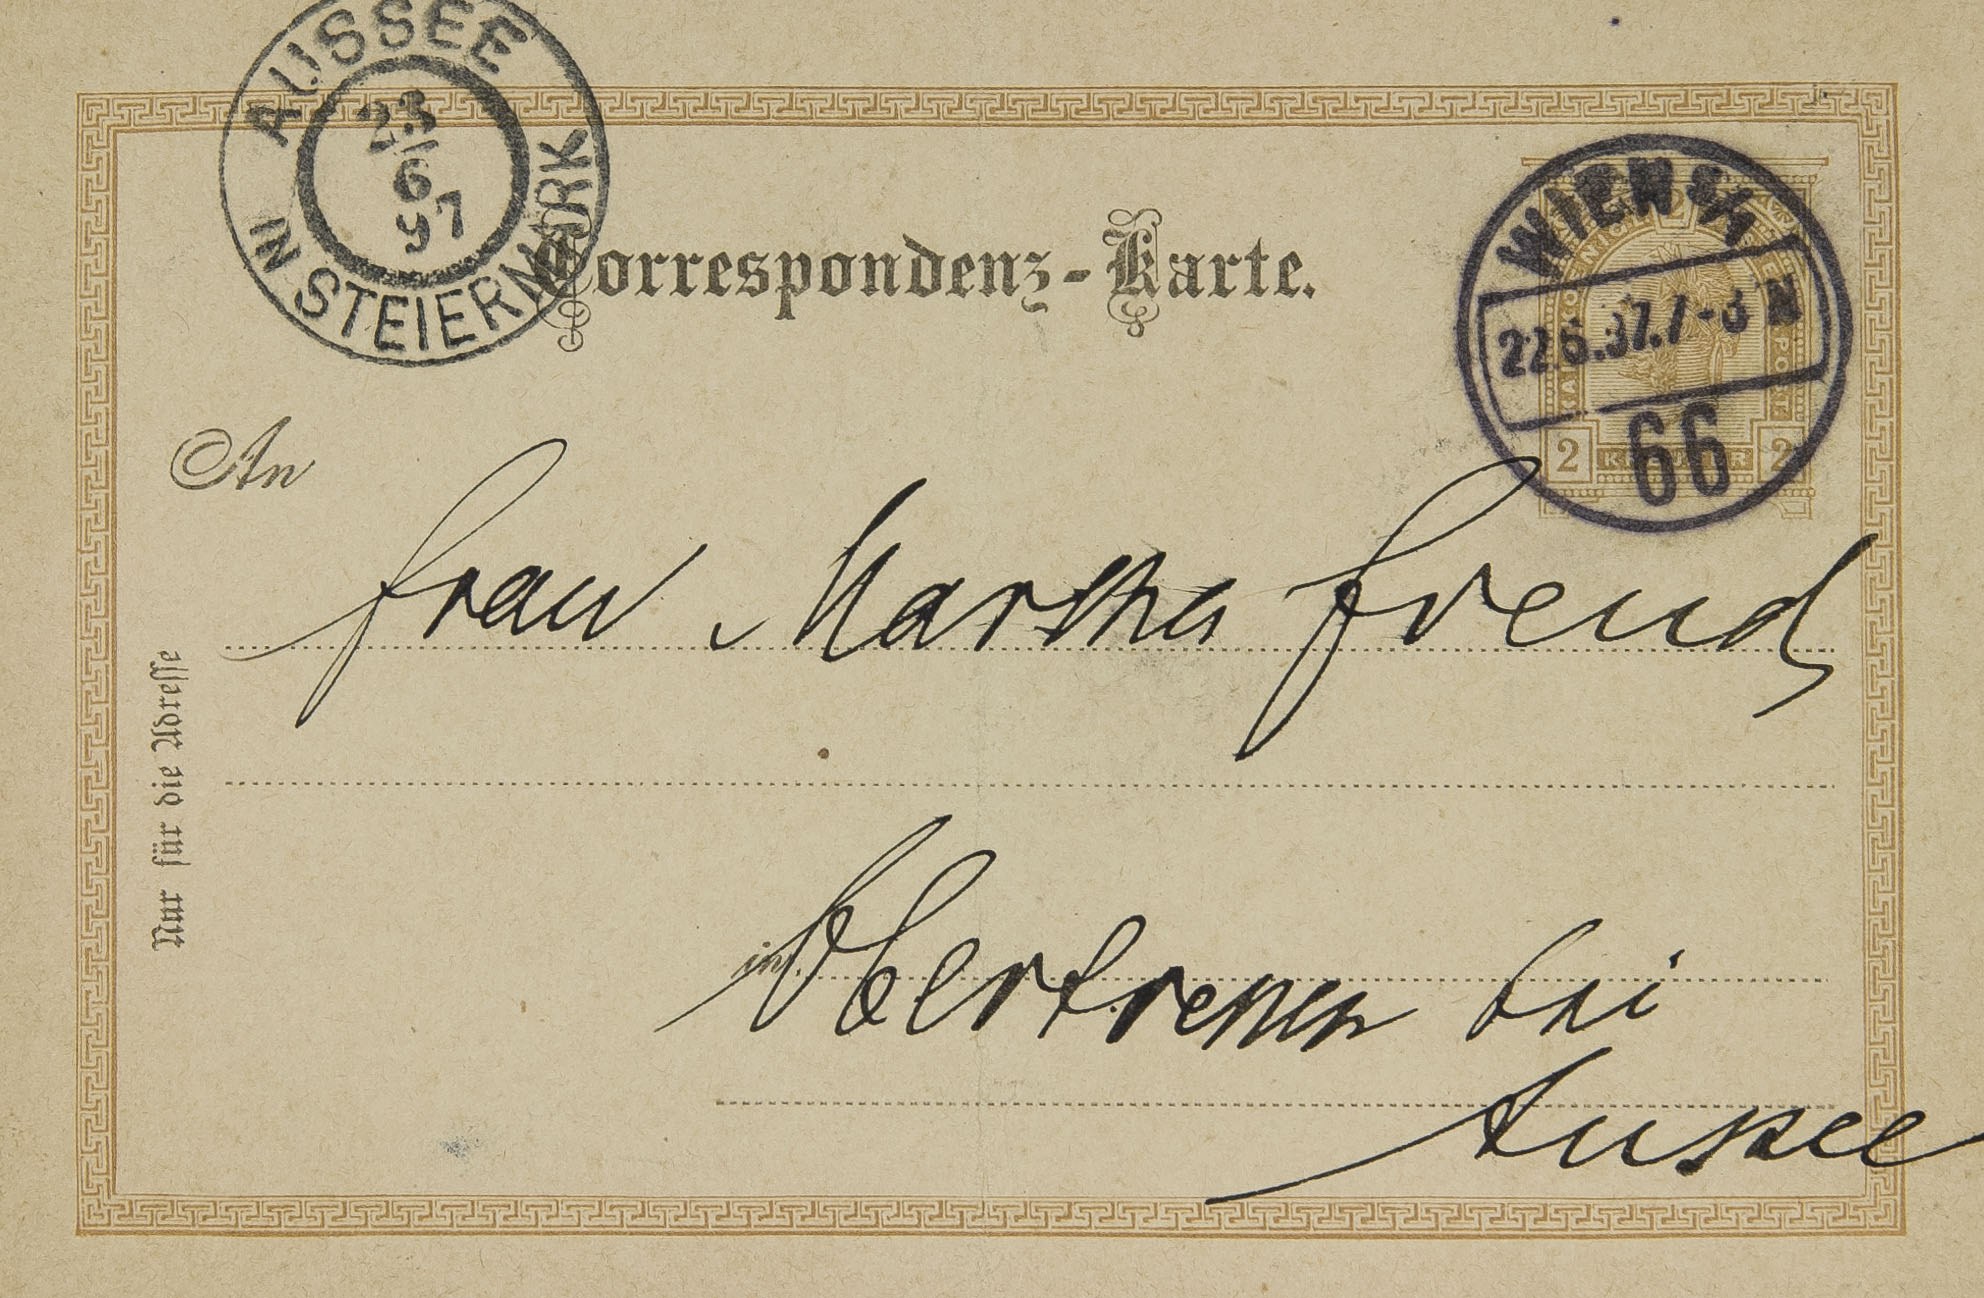 AUSSEE
23/6
97
IN STEIERMARK
Correspondenz-Karte.
WIEN 9/1
22.6.97.7-8 N
66
2 KREUZER 2
An
Frau Martha Freud
Nur für die Adresse
in
Obertressen bei
Aussee